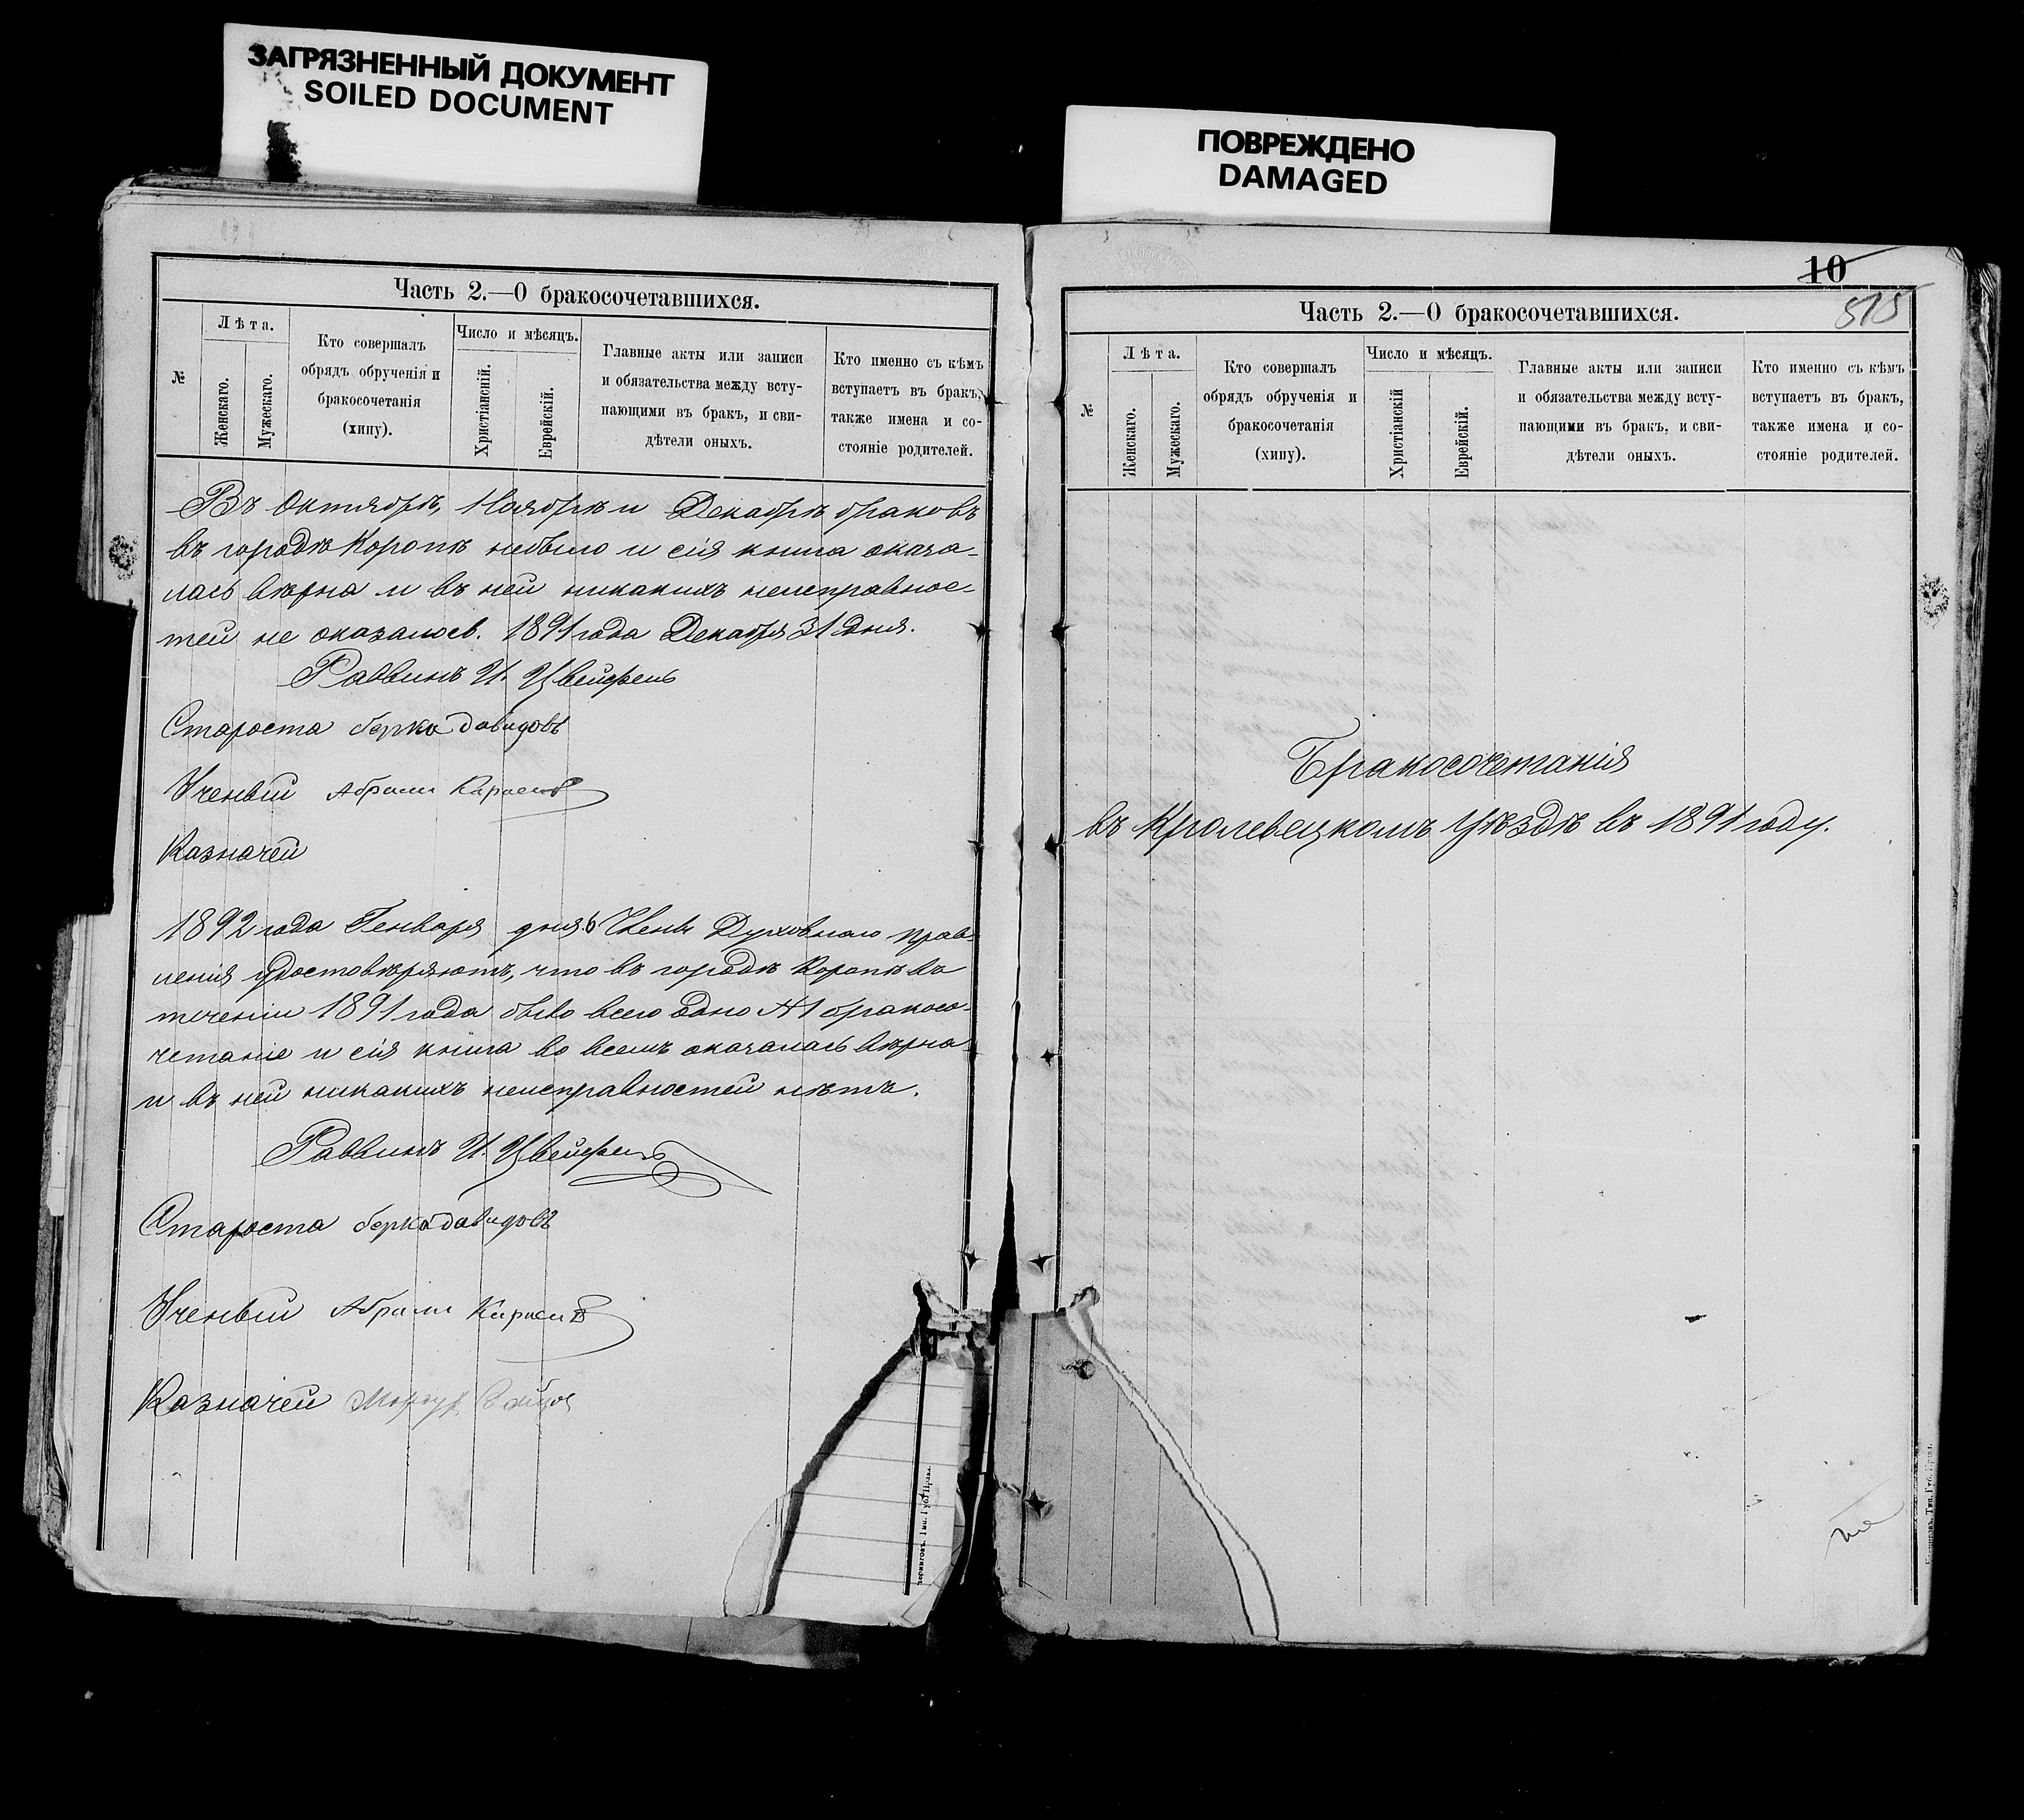 ЗАГРЯЗНЕННЫЙ ДОКУМЕНТ
SOILED DOCUMENT
Часть 2.—О бракосочетавшихся.
№
Лѣта.
Женскаго.
Мужескаго.
Кто совершалъ
обрядъ обрученія и
бракосочетанія
(хипу).
Число и мѣсяцъ.
Христіанскій.
Еврейскій.
Главные акты или записи
и обязательства между всту-
пающими въ бракъ, и сви-
дѣтели оныхъ.
Кто именно съ кѣмъ
вступаетъ въ бракъ,
также имена и со-
стояніе родителей.
Въ Октябрѣ, Ноябрѣ и Декабрѣ браковъ
въ городѣ Коропѣ небыло и сія книга оказа-
лась вѣрна и въ ней никакихъ неисправнос-
тей не оказалось. 1891 года Декабря 31 дня.
Раввинъ И. Цвейфель
Староста берка давидовъ
Ученый Абрам
Казначей
1892 года Генваря дня 6 Члены Духовнаго прав-
ленія удостовѣряютъ, что въ городѣ Коропѣ въ
теченіи 1891 года было всего одно №1 бракосо-
четаніе и сія книга во всемъ оказалась вѣрна
и въ ней никакихъ неисправностей нѣтъ.
Раввинъ И. Цвейфель
Староста берка давидовъ
Ученый Абрам
Казначей
Черниговъ. Тип. Губ. Правл.
ПОВРЕЖДЕНО
DAMAGED
10
515
Часть 2.—О бракосочетавшихся.
№
Лѣта.
Женскаго.
Мужескаго.
Кто совершалъ
обрядъ обрученія и
бракосочетанія
(хипу).
Число и мѣсяцъ.
Христіанскій
Еврейскій.
Главные акты или записи
и обязательства между всту-
пающими въ бракъ, и сви-
дѣтели оныхъ.
Кто именно съ кѣмъ
вступаетъ въ бракъ,
также имена и со-
стояніе родителей.
Бракосочетанія
въ Кролевецкомъ Уѣздѣ въ 1891 году.